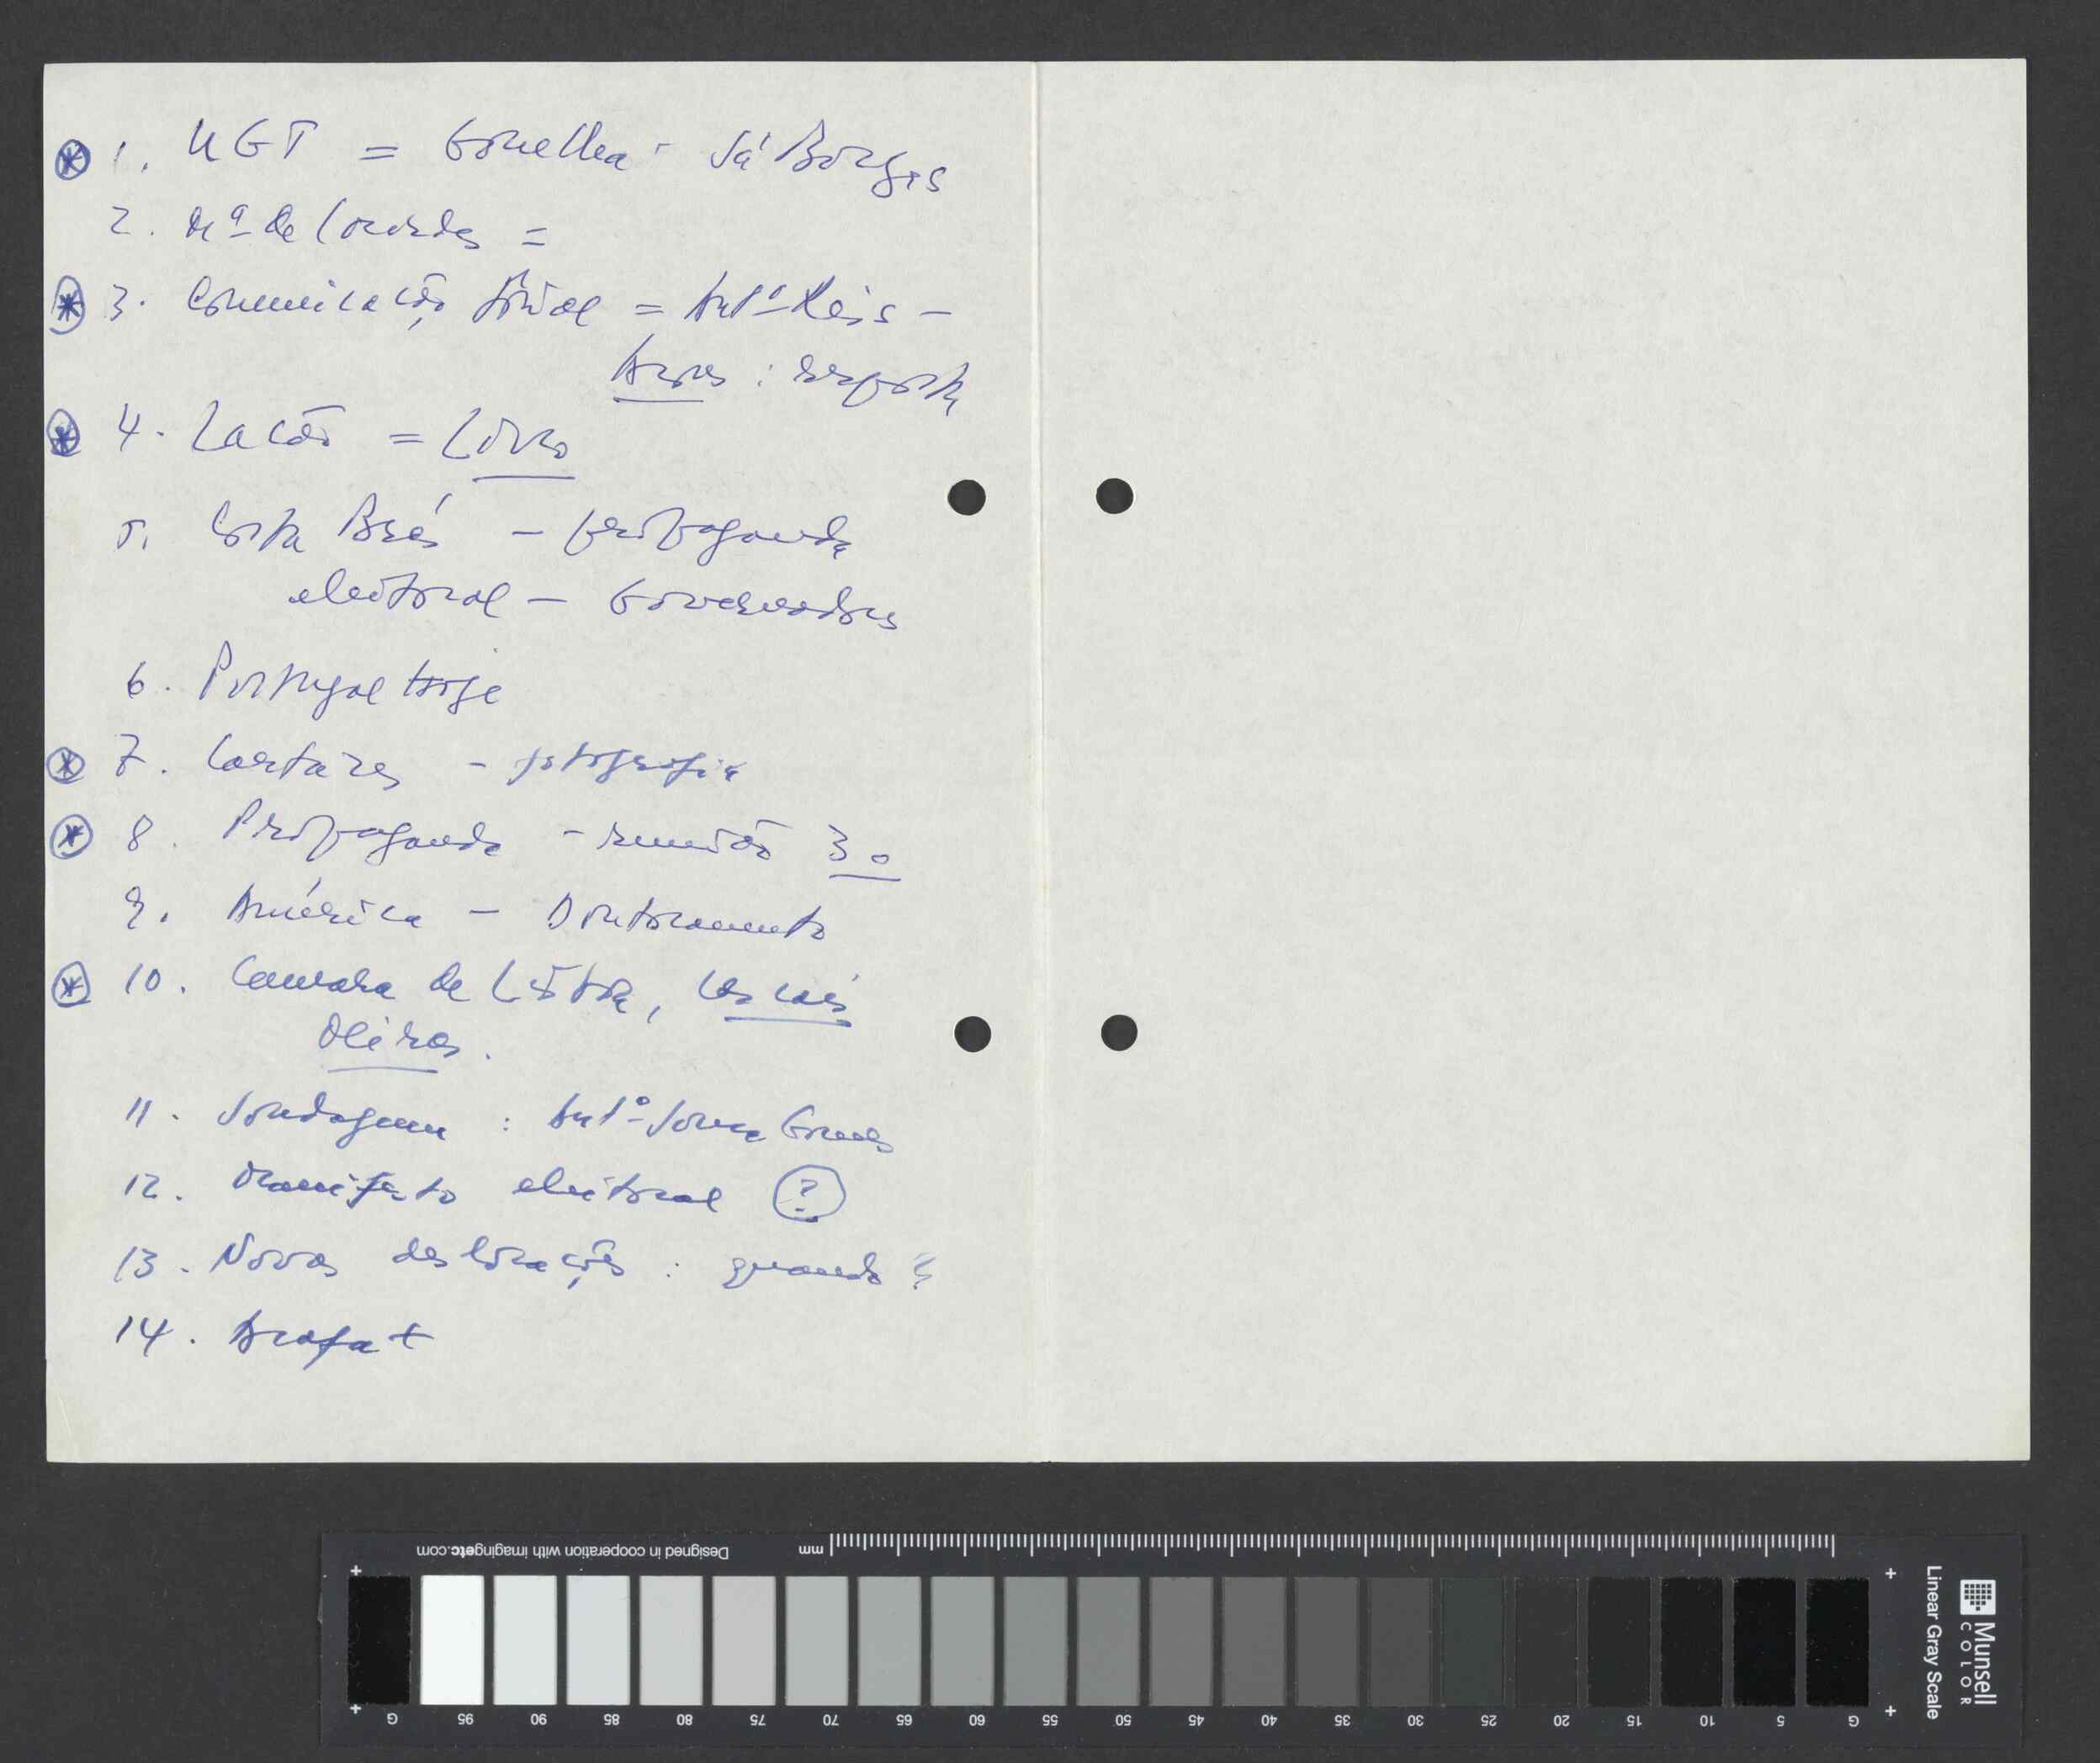 1. UGT = Gonelha - Sá Borges
2. Mª de Lourdes =
3. Comunicação Social = Antº Reis -
Açores : resposta
4. Lacão = Livro
5. Costa Brás - propaganda
eleitoral - Governadores
6. Portugal Hoje
7. Cartazes - fotografia
8. Propaganda - reunião 30
9. América - Doutoramento
10. Camara de Lisboa, Cascais
Oeiras.
11. Sondagem : Antº Sousa Gomes
12. Manifesto eleitoral ?
13. Novas deslocações : quando ?
14. Arafat
Designed in cooperation with imagingetc.com
mm
Munsell
COLOR
Linear Gray Scale
G 95 90 85 80 75 70 65 60 55 50 45 40 35 30 25 20 15 10 5 G